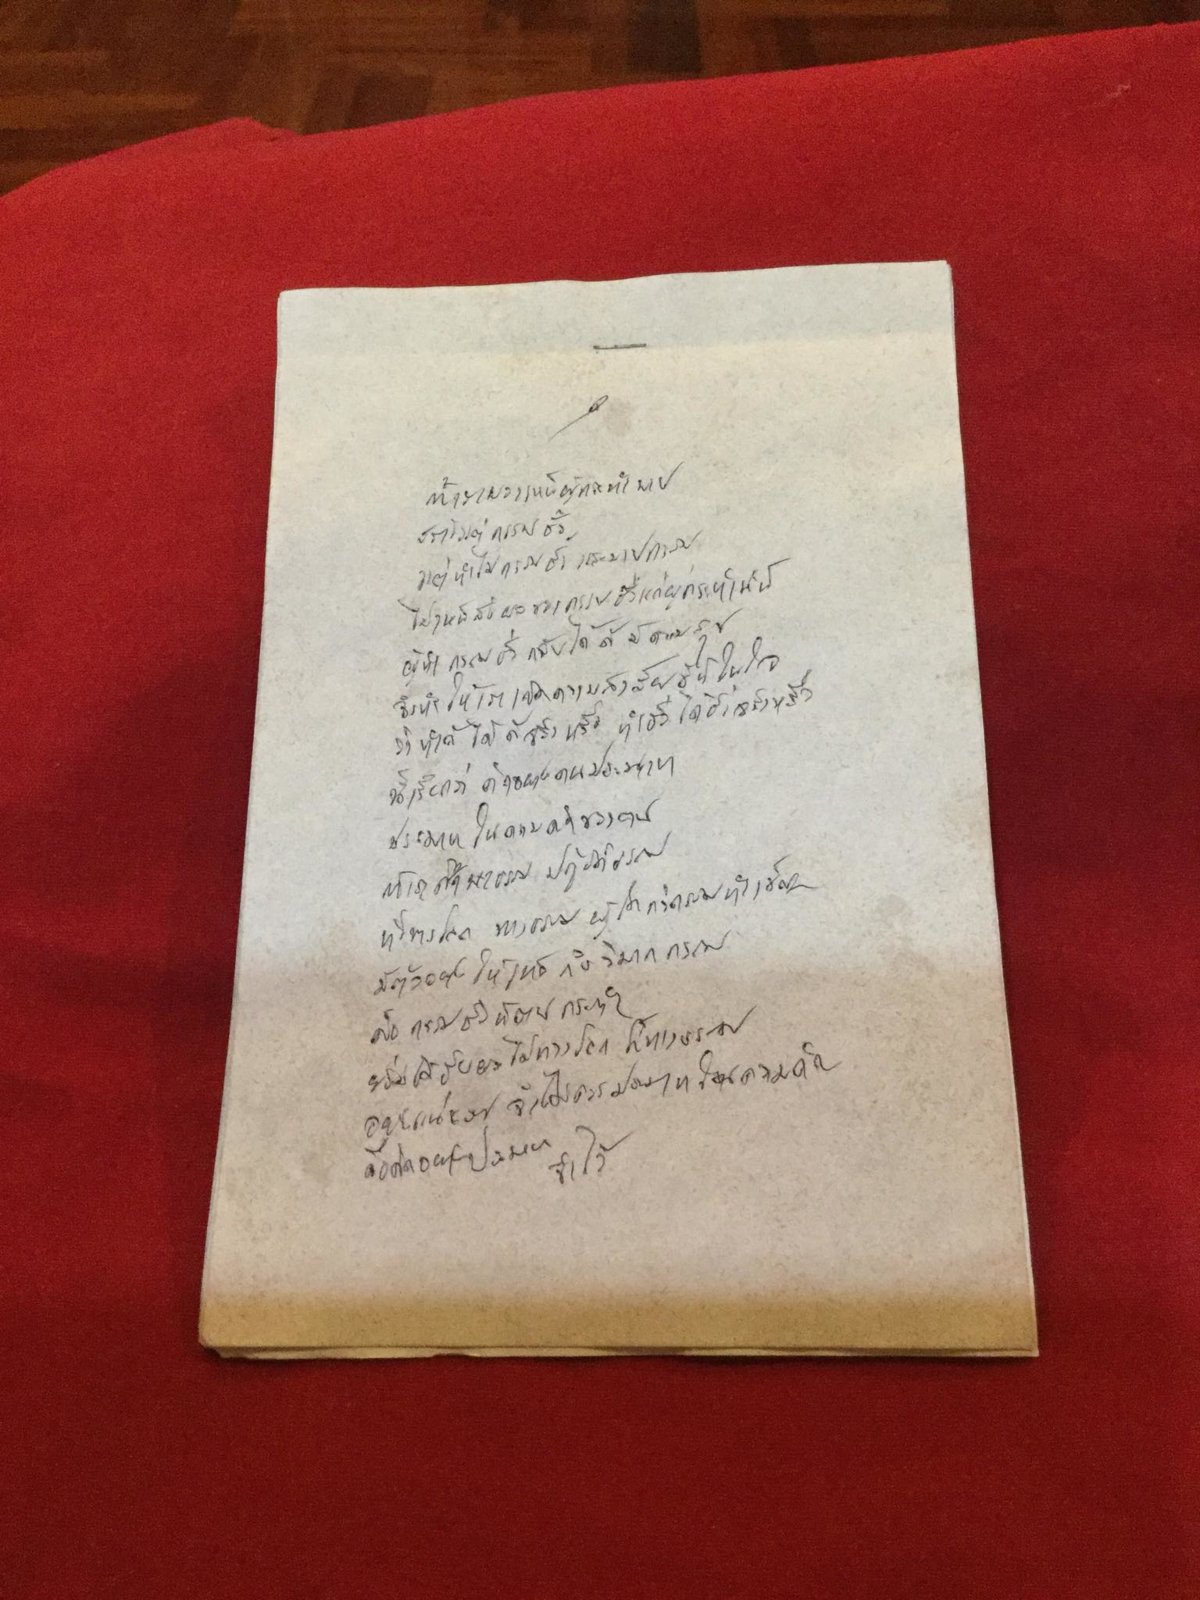 ถ้าเรามองเห็นผู้กระทำบาป
สร้างแต่กรรมชั่ว
แต่ทำไมกรรมชั่ว และบาปกรรม
ไม่เห็นส่งผลของกรรมชั่วแก่ผู้กระทำนั้น
ผู้ทำกรรมชั่ว กลับได้ดี มีความสุข
จึงทำให้เราเกิดความสงสัยขึ้นในใจ
ว่าทำดีได้ดีจริงหรือ ทำชั่วได้ชั่วจริงหรือ
นี้เรียกว่า คิดอย่างคนประมาท
ประมาทในความคิดของตน
ถ้าเราศึกษาธรรม ปฏิบัติธรรม
ทั้งทางโลก ทางธรรม
มีตัวอย่างให้เห็น ถึงวิบากกรรม
คือ กรรมชั่วที่
ย่อมได้รับผล ไม่ทางโลก ก็ทางธรรม
อย่างแน่นอน จึงไม่ควรประมาทในความคิด
คือคิดอย่างประมาท
จำไว้